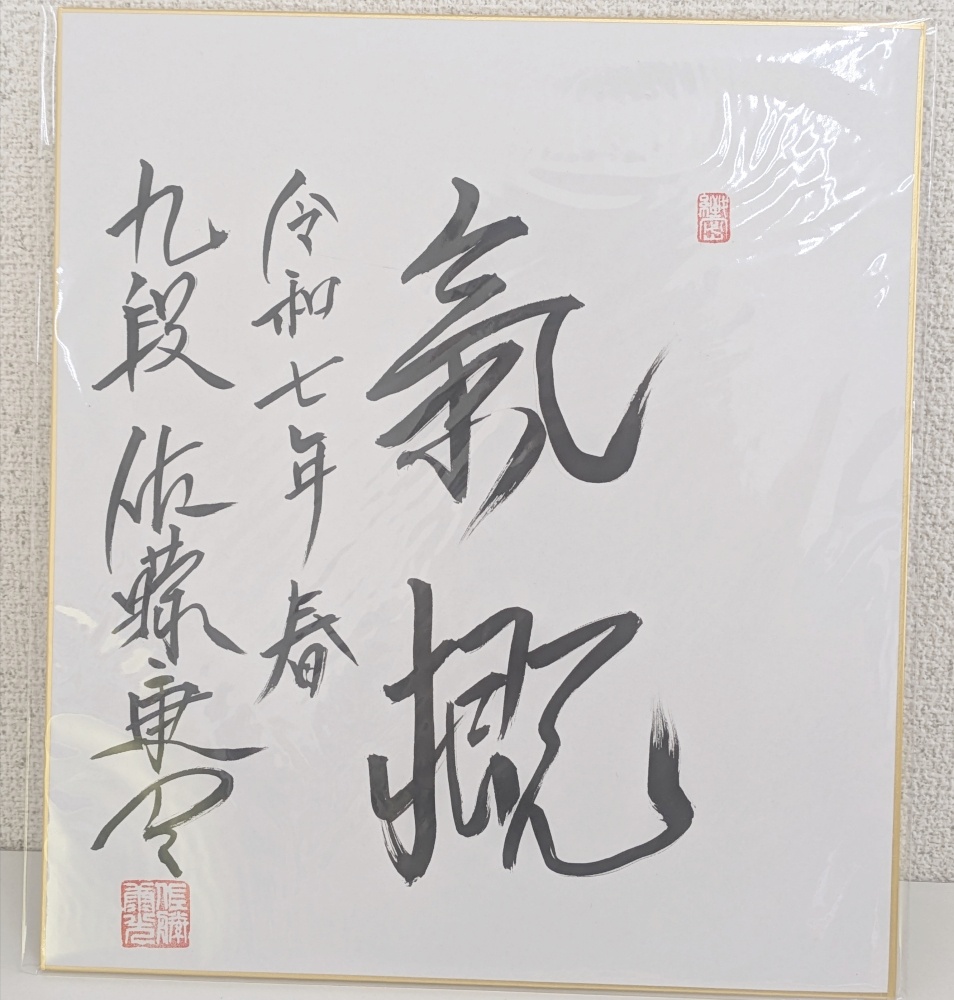 氣概
令和七年春
九段 佐藤康光
佐藤康光